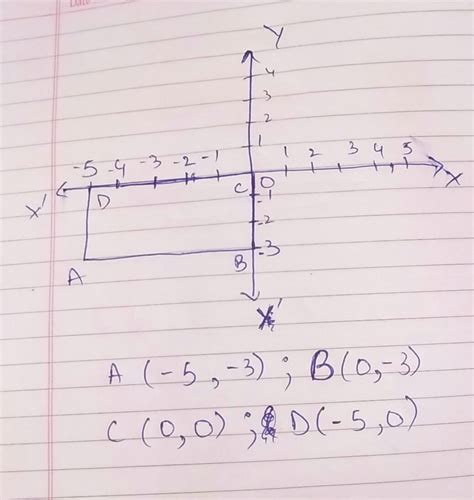 Date
Y
4
3
2
1
-5 -4 -3 -2 -1 1 2 3 4 5
X' D C O X
-1
-2
A B -3
X'
A (-5, -3) ; B(0, -3)
C (0, 0) ; D(-5, 0)